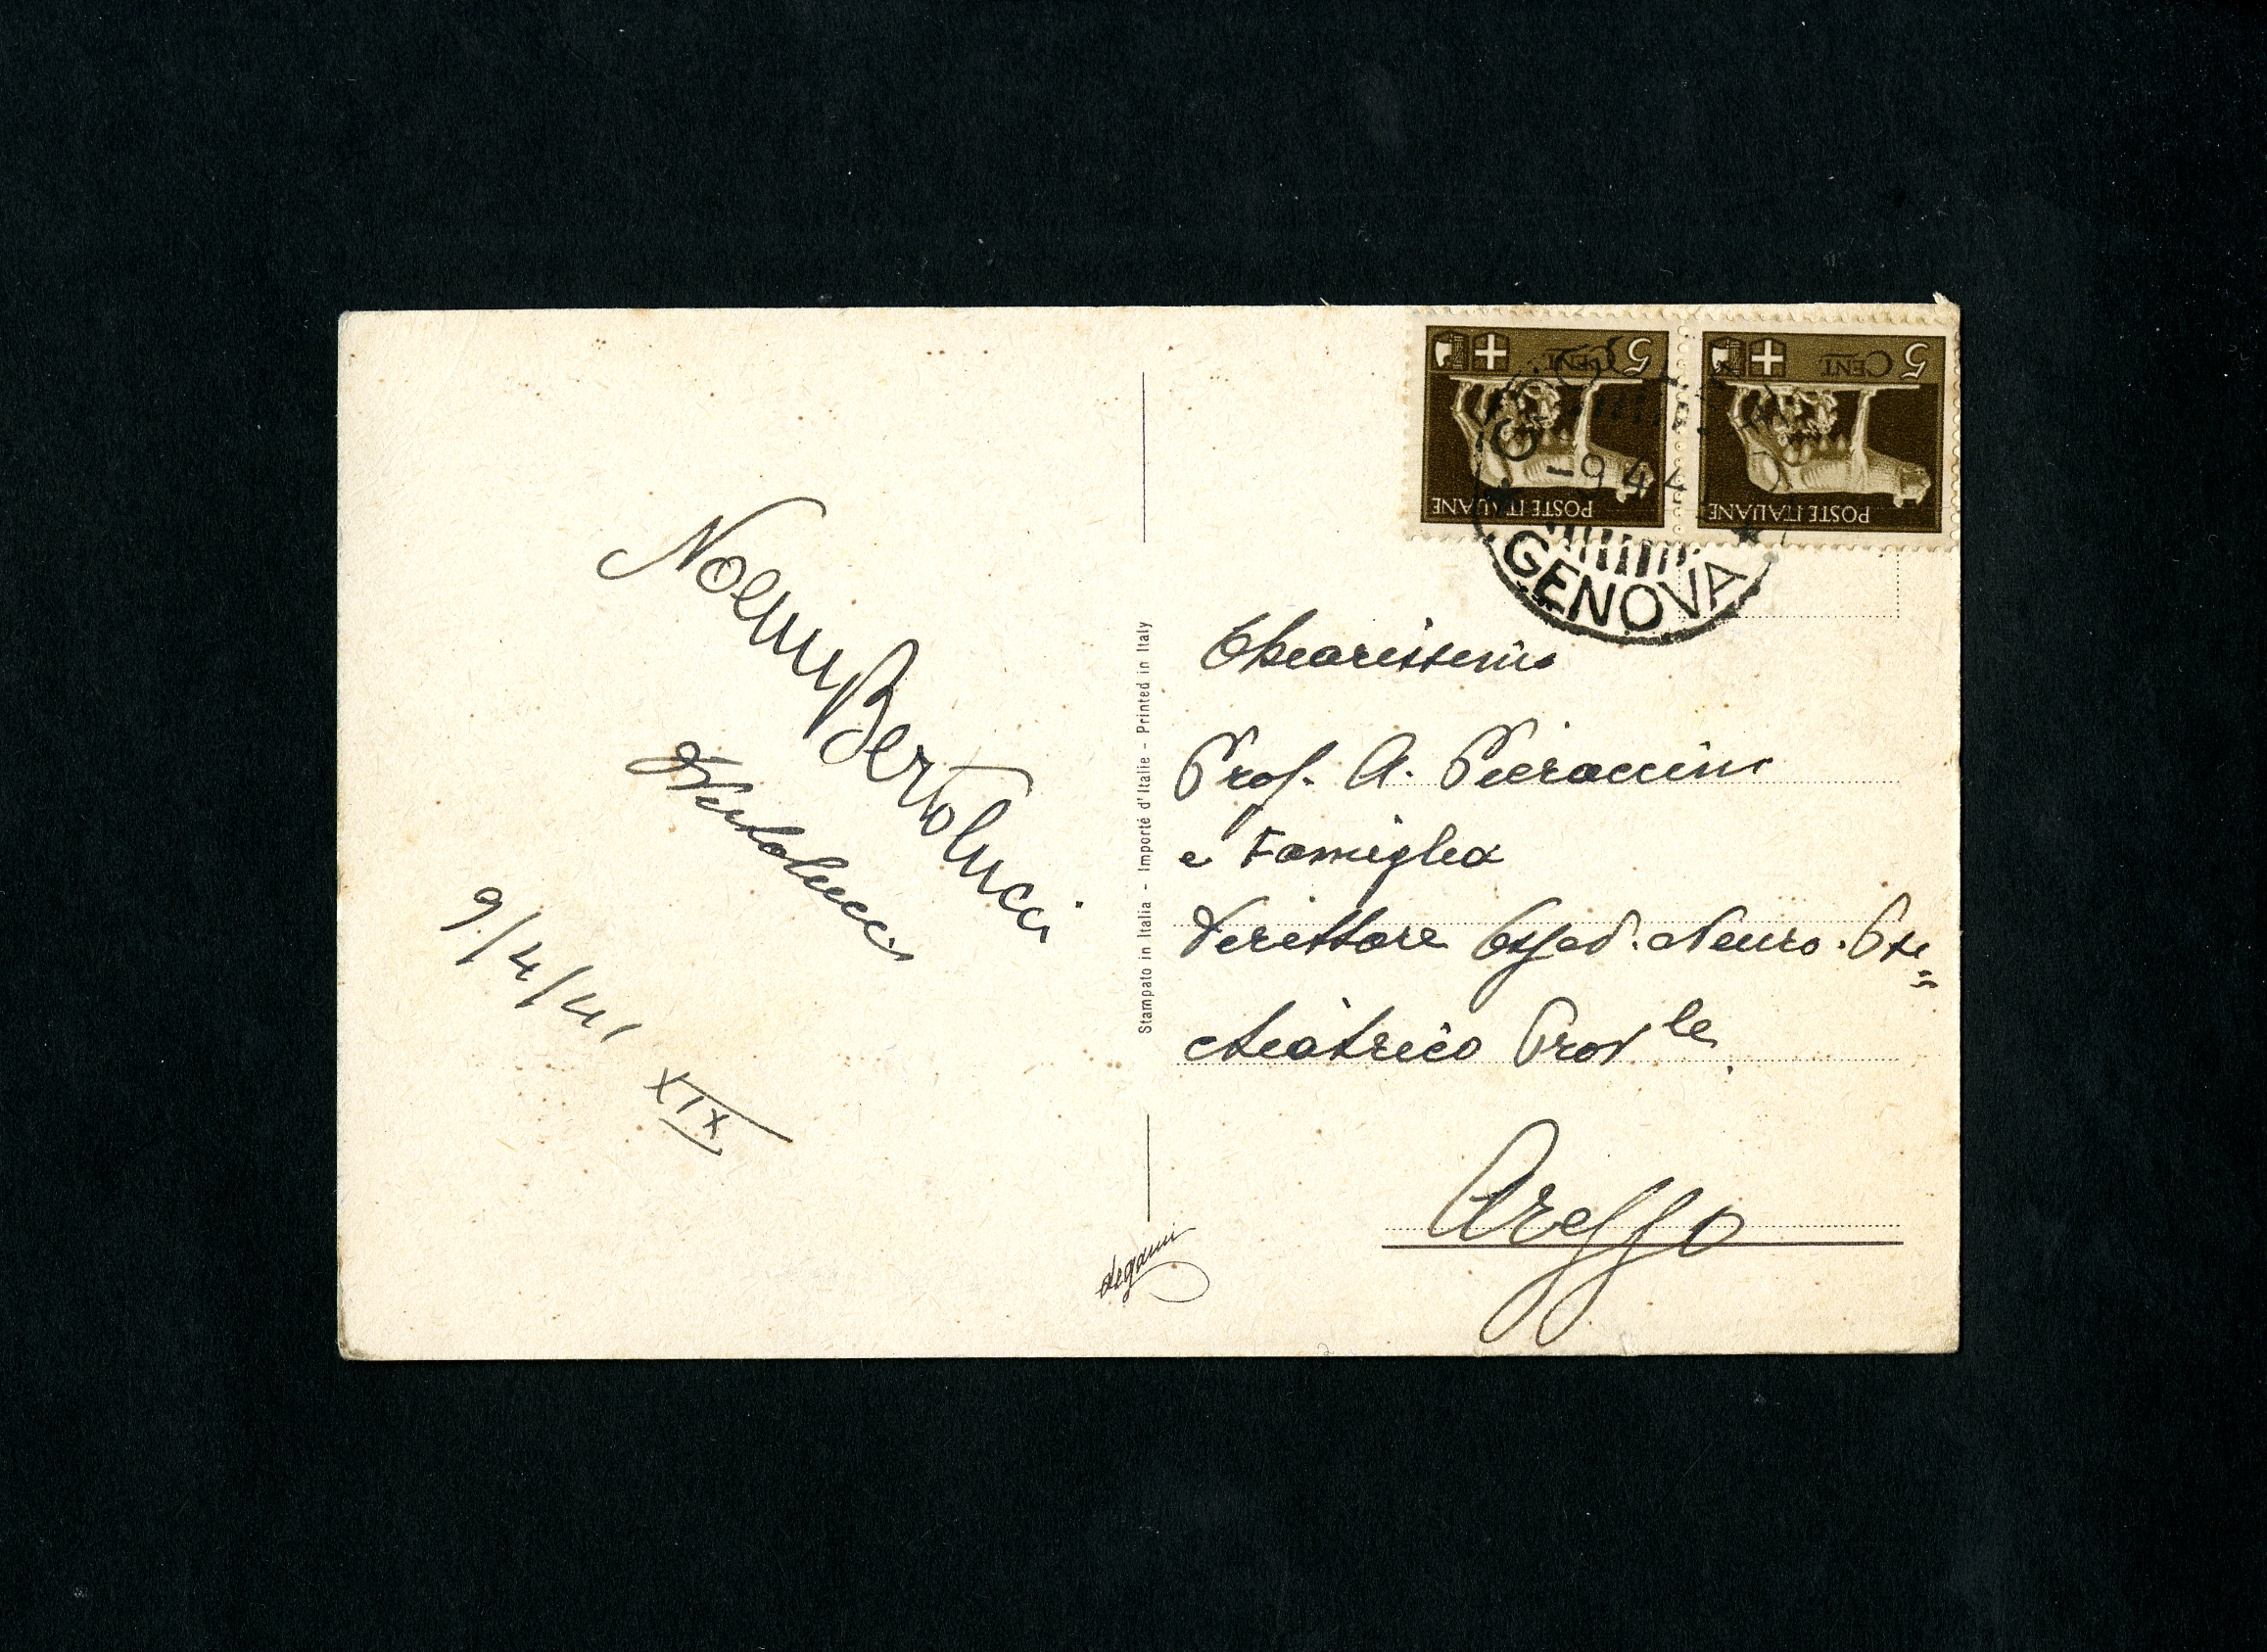 Noemi Bertolucci
Bertolucci
9/4/41
XIX
Stampato in Italia - Importé d'Italie - Printed in Italy
degami
5 CENT.
POSTE ITALIANE
5 CENT.
POSTE ITALIANE
-9 4 41
GENOVA
Chiarissimo
Prof. A. Pieraccini
e Famiglia
Direttore Osped. Neuro. Psi=
chiatrico Prov.le
Arezzo